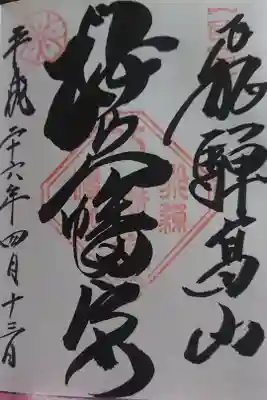 飛騨高山
桜山八幡宮
平成二十六年四月十三日